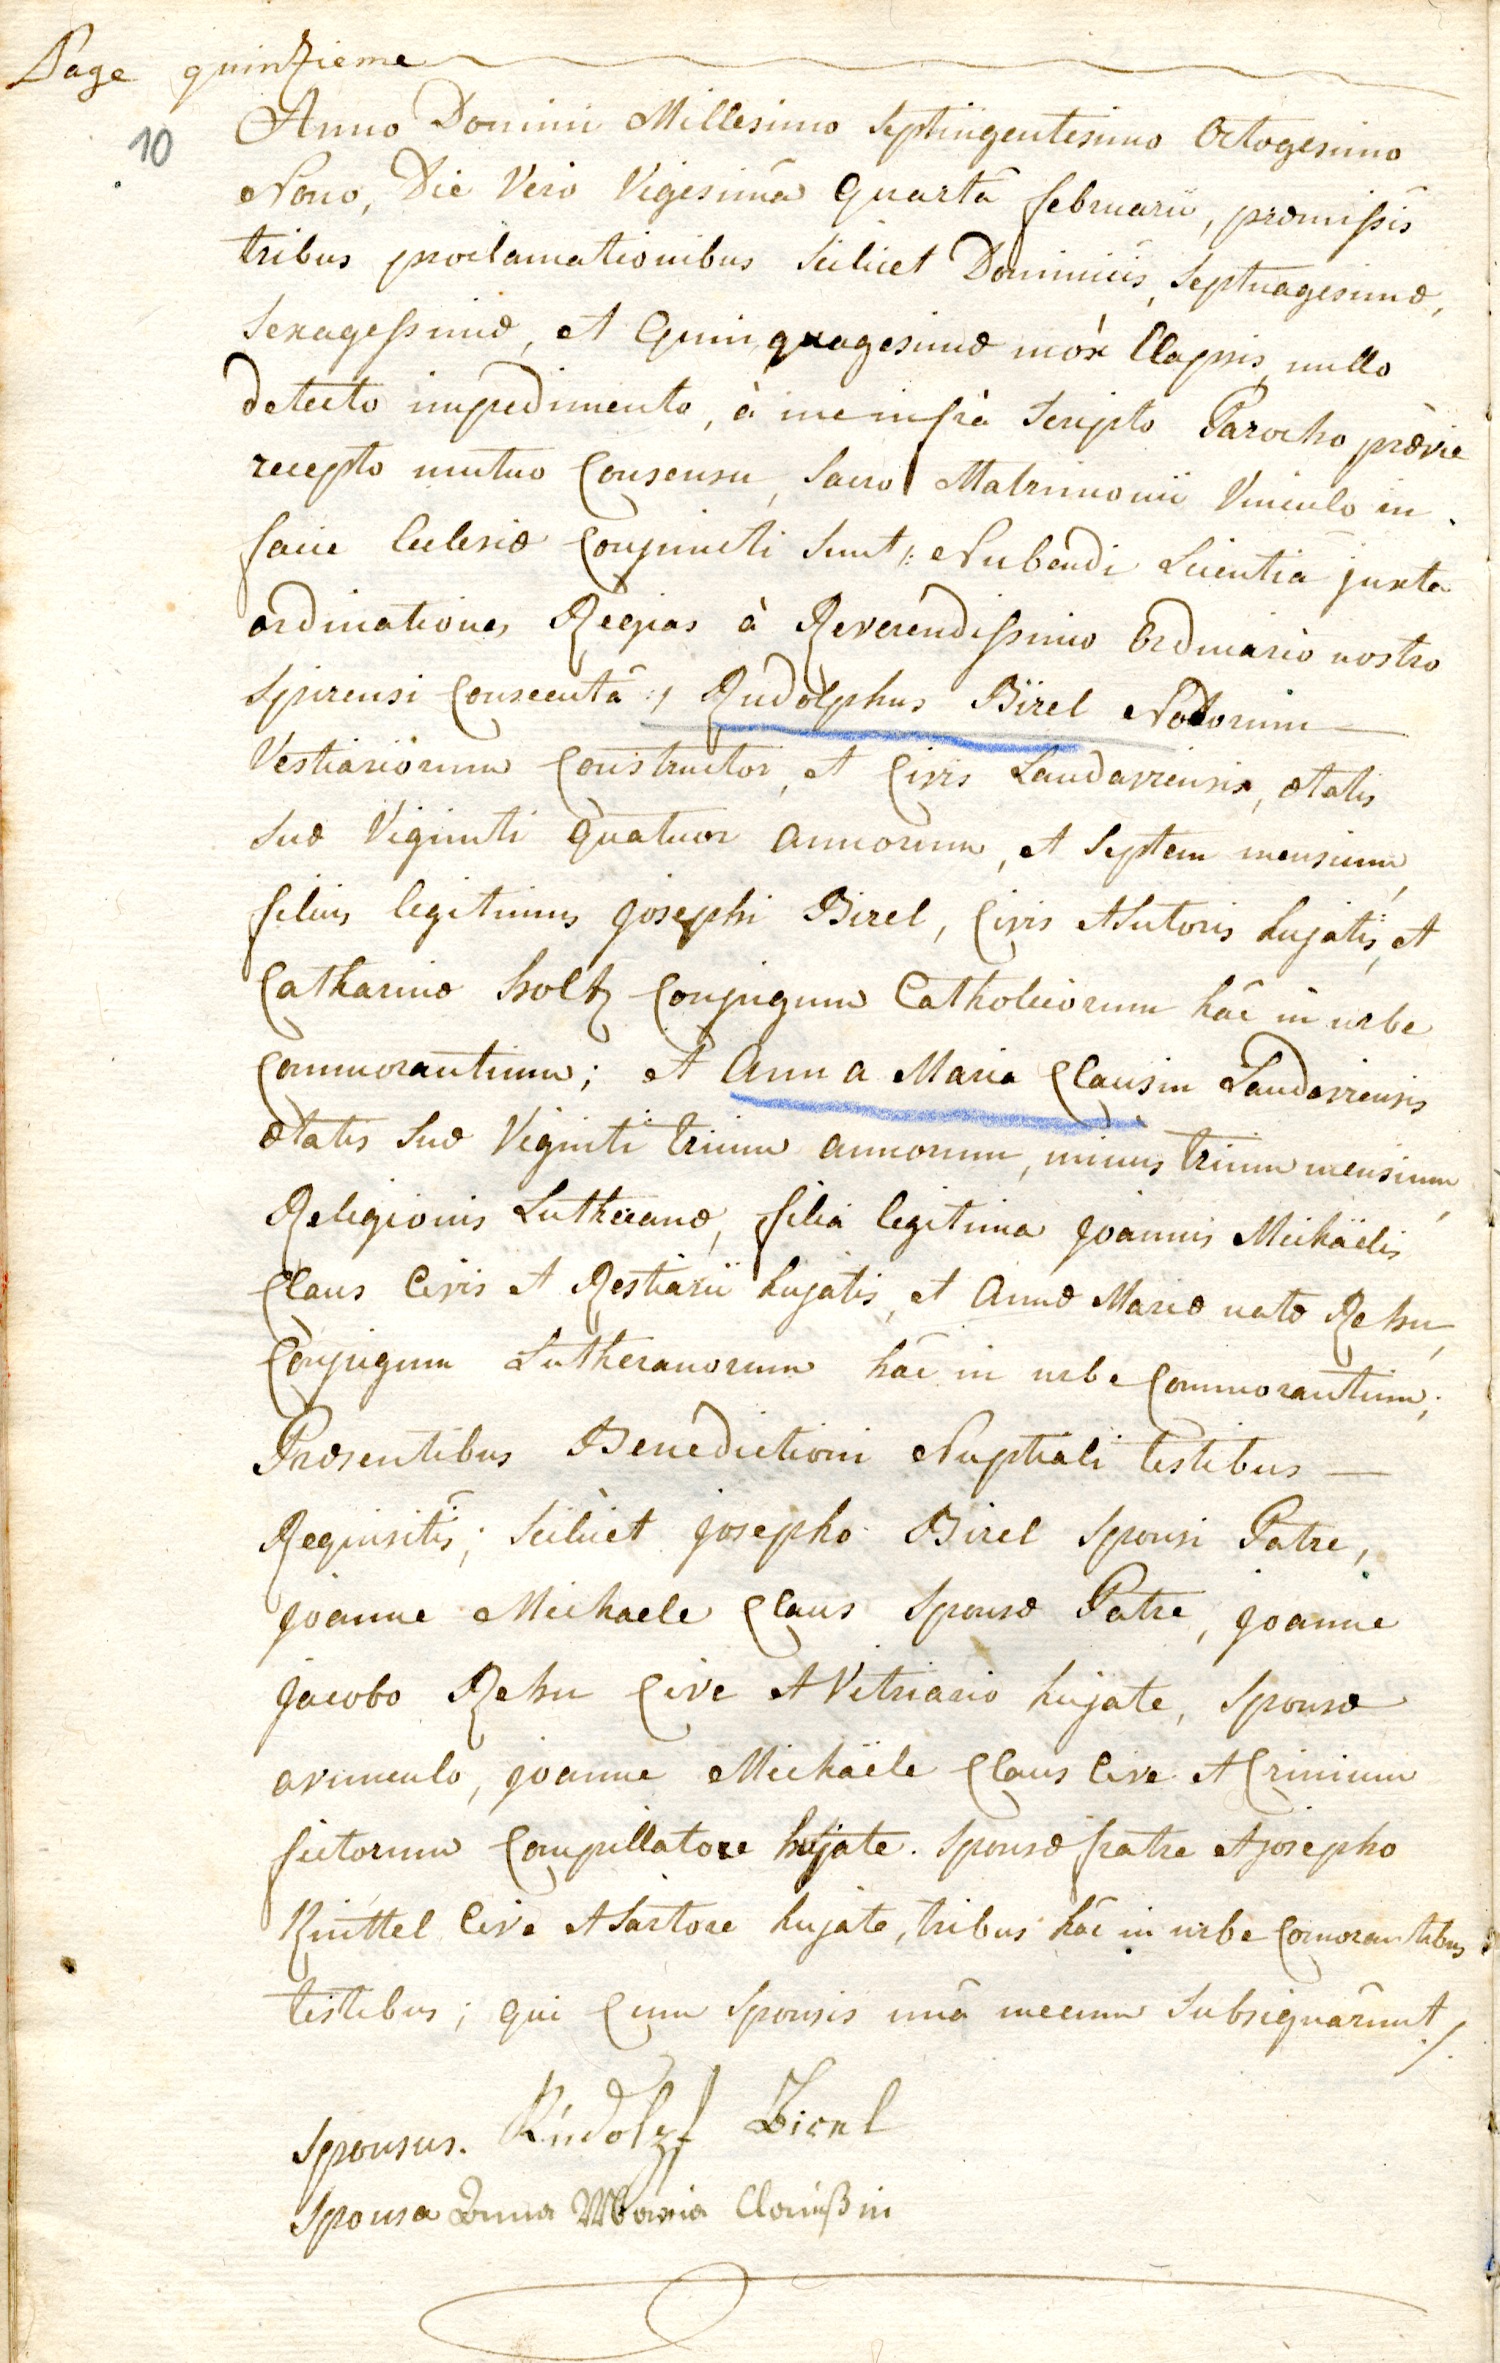 Page quinzieme
10
Anno Domini Millesimo Septingentesimo Octogesimo
Nono, Die Vero Vigesimâ Quartâ februarii, præmissis
tribus proclamationibus Scilicet Dominicis, Septuagesimæ,
Sexagessimæ, et Quinquagesimæ mòx Elapsis, nullo
detecto impedimento, à me infrà Scripto Parocho prævie
recepto mutuo Consensu, Sacro Matrimonii Vinculo in
facie Ecclesiæ Conjuncti Sunt /: Nubendi Licentiâ juxta
ordinationes Regias à Reverendissimo Ordinario nostro
Spirensi Consecutâ :/ Rudolphus Birel Nodorum
Vestiariorum Constructor, et Civis Landaviensis, ætatis
Suæ Viginti Quatuor annorum, et Septem mensium,
filius legitimus Josephi Birel, Civis et Sutoris hujatis, et
Catharinæ Holtz Conjugum Catholicorum hâc in urbe
Commorantium; et Anna Maria Clausin Landaviensis
ætatis Suæ Viginti trium annorum, minus trium mensium,
Religionis Lutheranæ, filia legitima Joannis Michäelis
Claus Civis et Restiarii hujatis, et Annæ Mariæ natæ Rehn,
Conjugum Lutheranorum hâc in urbe Commorantium;
Præsentibus Benedictioni Nuptiali testibus
Requisitis; Scilicet Josepho Birel Sponsi Patre,
Joanne Michaele Claus Sponsæ Patre, Joanne
Jacobo Rehn Cive et Vitriario hujate, Sponsæ
avunculo, Joanne Michäele Claus Cive et Crinium
fictorum Compillatore hujate. Sponsæ fratre et Josepho
Knittel Cive et Sartore hujate, tribus hâc in urbe Comorantibus
testibus; qui Cum Sponsis unâ mecum Subsignârunt /.
Sponsus. Rudolph Birel
Sponsa Anna Maria Claußin